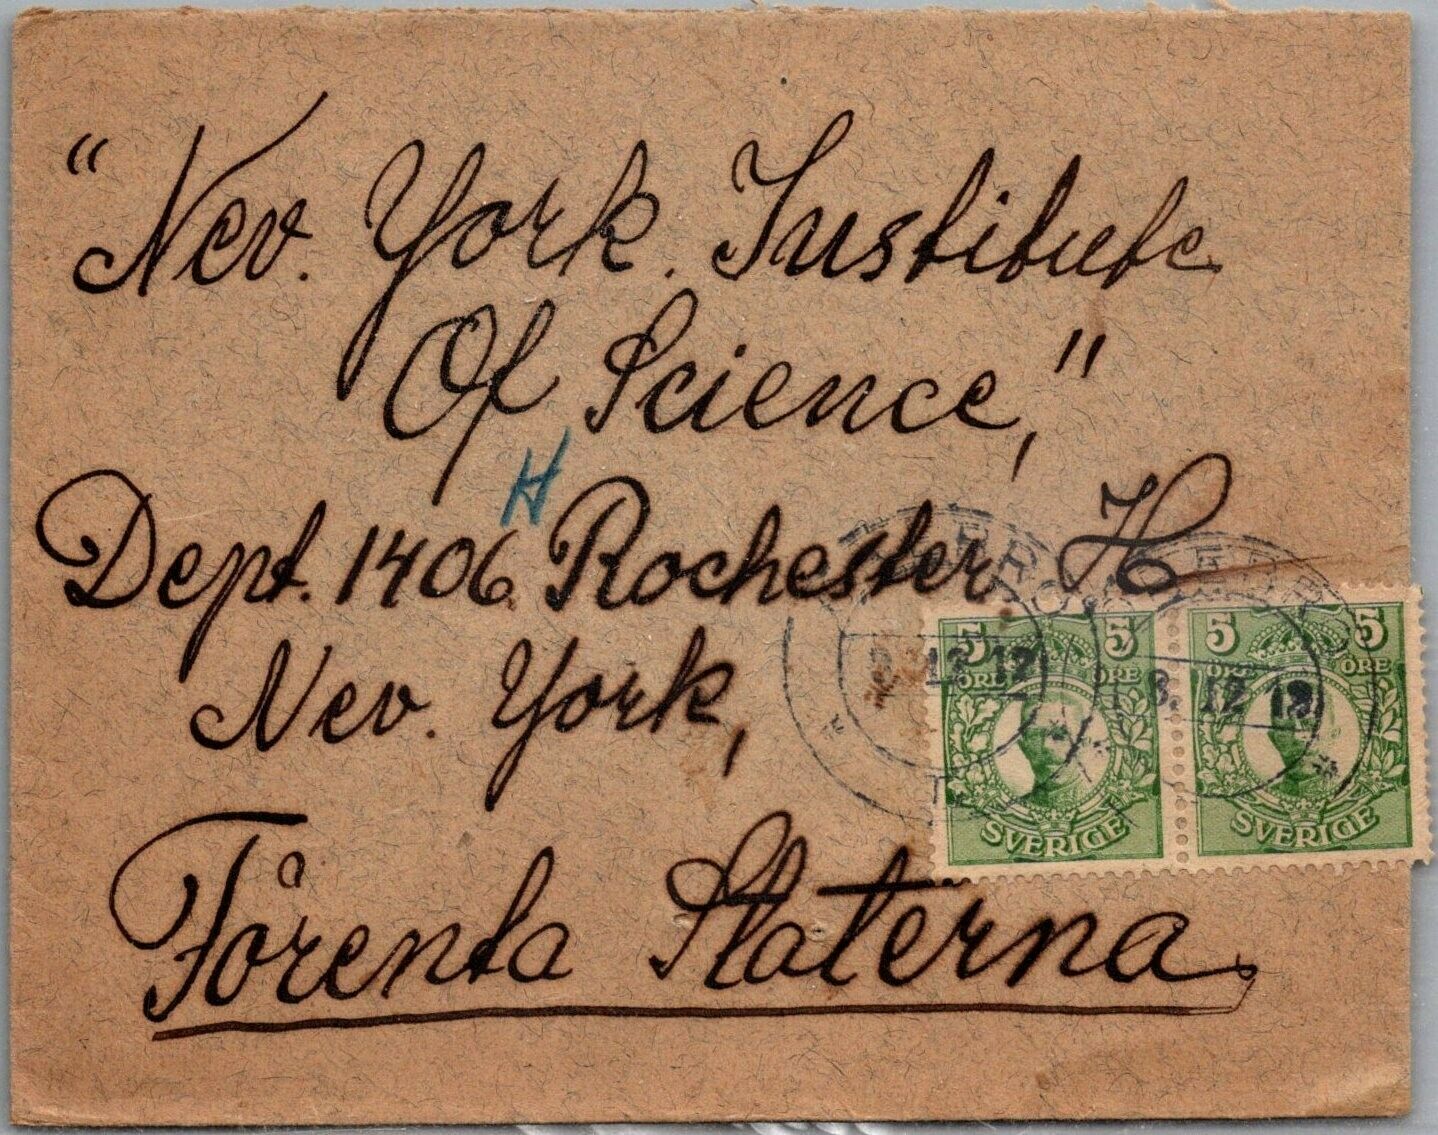 "Nev. York. Institute
Of Science,"
H
Dept. 1406 Rochester, H
Nev. York,
Förenta Staterna.
5 5 5 5
ÖRE ÖRE ÖRE ÖRE
12 12
8. 12 12
SVERIGE SVERIGE